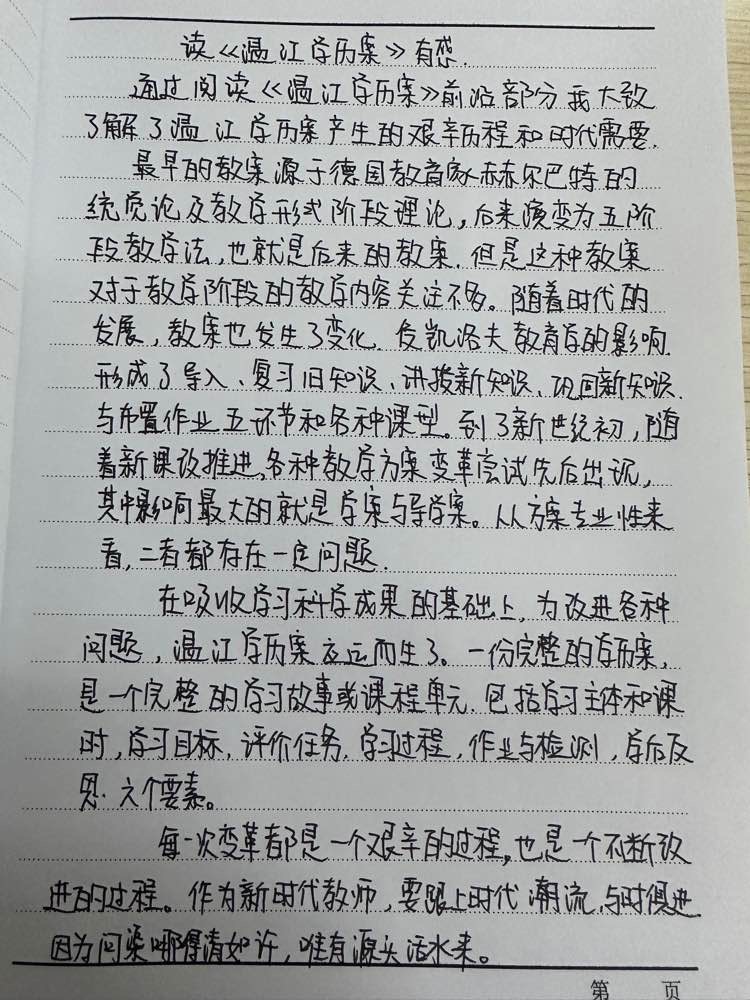 读《温江学历案》有感.
通过阅读《温江学历案》前沿部分我大致
了解了温江学历案产生的艰辛历程和时代需要.
最早的教案源于德国教育家赫尔巴特的
统觉论及教学形式阶段理论，后来演变为五阶
段教学法，也就是后来的教案.但是这种教案
对于教学阶段的教学内容关注不多。随着时代的
发展，教案也发生了变化.受凯洛夫教育学的影响.
形成了导入、复习旧知识、讲授新知识、巩固新知识.
与布置作业五环节和各种课型。到了新世纪初，随
着新课改推进,各种教学方案变革尝试先后出现,
其中影响最大的就是学案与导学案。从方案专业性来
看,二者都存在一定问题.
在吸收学习科学成果的基础上,为改进各种
问题，温江学历案应运而生了。一份完整的学历案,
是一个完整的学习故事或课程单元.包括学习主体和课
时,学习目标,评价任务,学习过程,作业与检测,学后反
思.六个要素。
每一次变革都是一个艰辛的过程,也是一个不断改
进的过程。作为新时代教师,要跟上时代潮流,与时俱进.
因为问渠哪得清如许,唯有源头活水来。
第 页